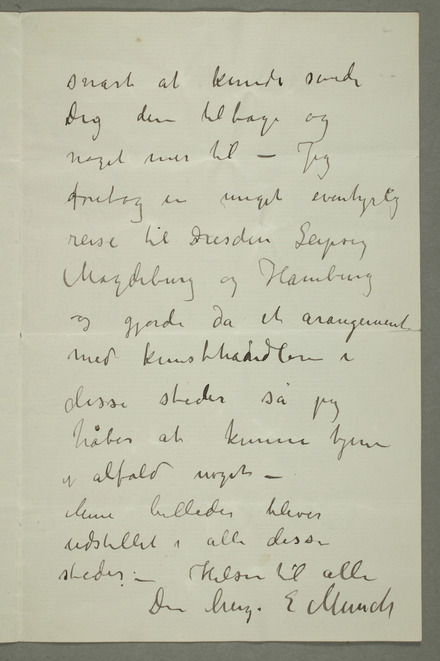 snart at kunde sende
Dig dem tilbage og
noget mer til – Jeg
foretog en meget eventyrlig
reise til Dresden Leipzig
Magdeburg og Hamburg
og gjorde da et arangement
med kunsthandlern i
disse steder så jeg
håber at kunne tjene
i alfald noget –
Mine billeder bliver
udstillet i alle disse
steder. – Hilsen til alle
Din heng. E Munch